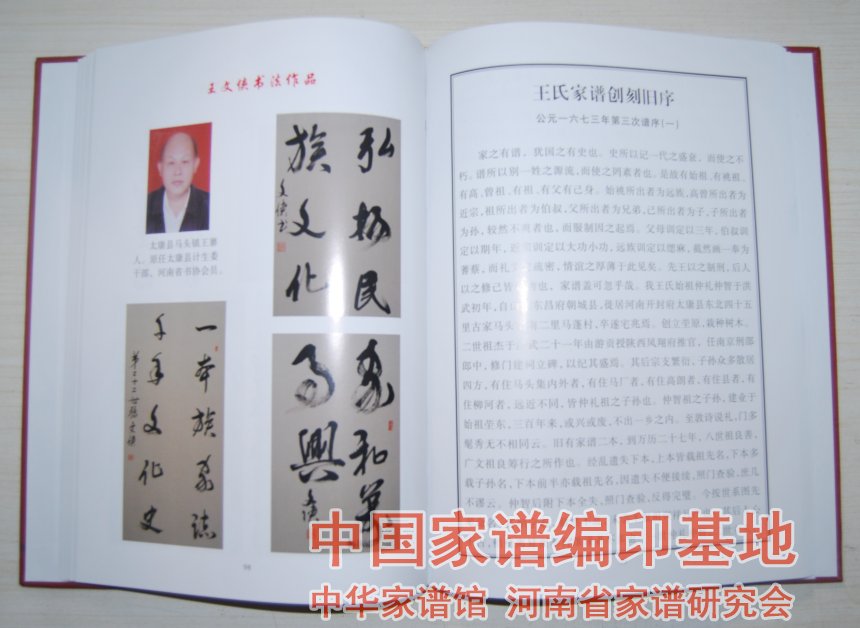 王文侠书法作品
太康县马头镇王寨
人。原任太康县计生委
干部，河南省书协会员。
弘扬民
族文化
文侠书
一本族家谱
千年文化史
家和万
事兴
98
王氏家谱创刻旧序
公元一六七三年第三次谱序(一)
家之有谱，犹国之有史也。史所以记一代之盛衰，而使之不
朽。谱所以别一姓之源流，而使之罔紊者也。是故有始祖、有祧祖、
有高、曾祖、有祖、有父有己身。始祧所出者为远族，高曾所出者为
近宗，祖所出者为伯叔，父所出者为兄弟，己所出者为子，子所出者
为孙，较然不爽者也，而服制因之起焉。父母训定以三年，伯叔训
定以期年，近 训定以大功小功，远族训定以缌麻，截然画一奉为
蓍蔡，而礼 疏密，情谊之厚薄于此见矣。先王以之制刑，后人
以之修己皆 也，家谱盖可忽乎哉。我王氏始祖仲礼仲智于洪
武初年，自 东昌府朝城县，徙居河南开封府太康县东北四十五
里古家马头 二里马蓬村，卒遂宅兆焉。创立茔原，栽种树木。
二世祖杰于 武二十一年由游贡授陕西凤翔府推官，任南京刑部
郎中，修门建祠立碑，以纪其盛焉。其后宗支繁衍，子孙众多散居
四方，有住马头集内外者，有住马厂者，有住高朗者，有住县者，有
住柳河者，远近不同，皆仲礼祖之子孙也。仲智祖之子孙，建业于
始祖茔东，三百年来，或兴或废，不出一乡之内。至敦诗说礼，门多
髦秀无不相同云。旧有家谱二本，到万历二十七年，八世祖良善，
广文祖良筹行之所作也。经乱遗失下本，上本皆载祖先名，下本多
载子孙名，下本前半亦载祖先名，因遗失不便接续，照门查验，庶几
不谬云。仲智后附下本全失，照门查验，反得完璧。今按世系图先
中国家谱编印基地
中华家谱馆 河南省家谱研究会